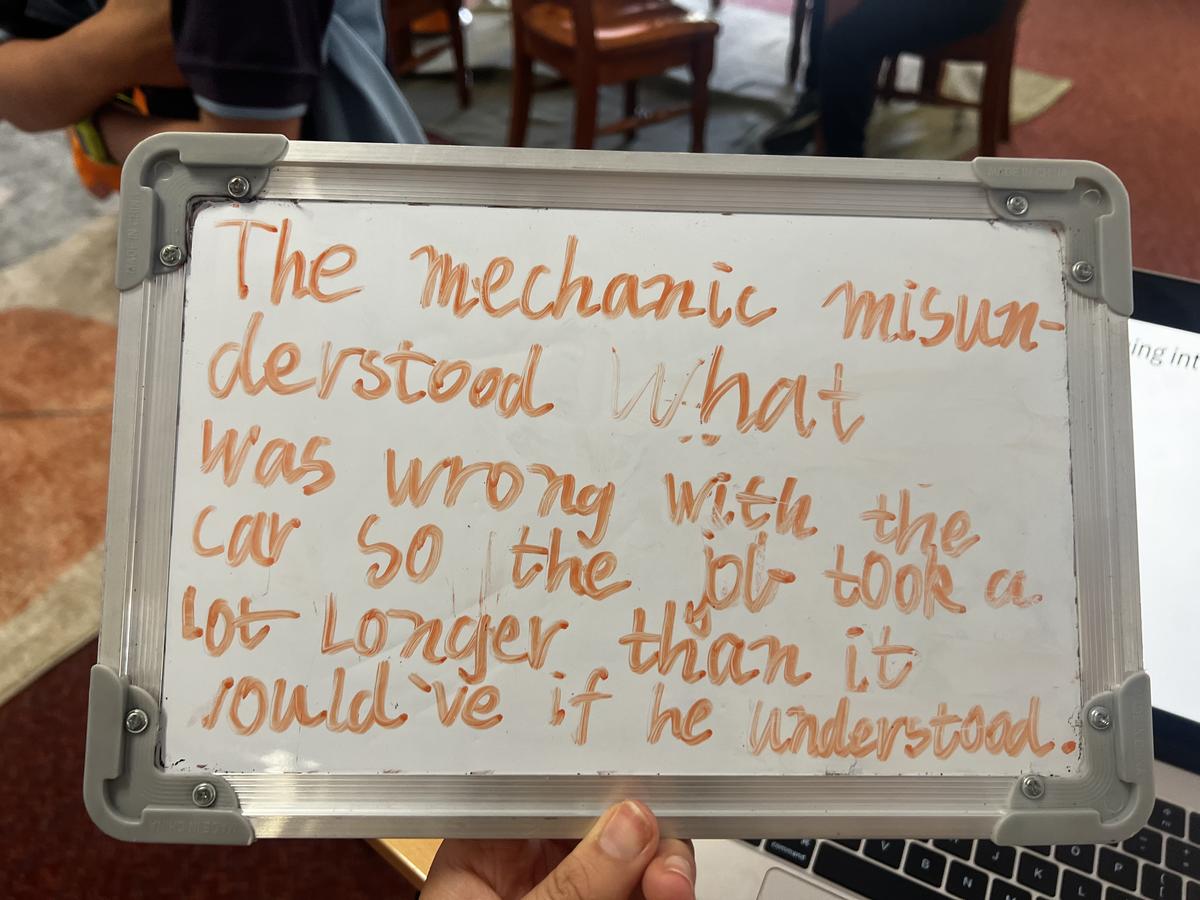 The mechanic misun-
derstood What
was wrong with the
car so the job took a
Lot Longer than it
would've if he understood.
ing int
MADE IN CHINA
command
V
B
N
J
K
L
O
P